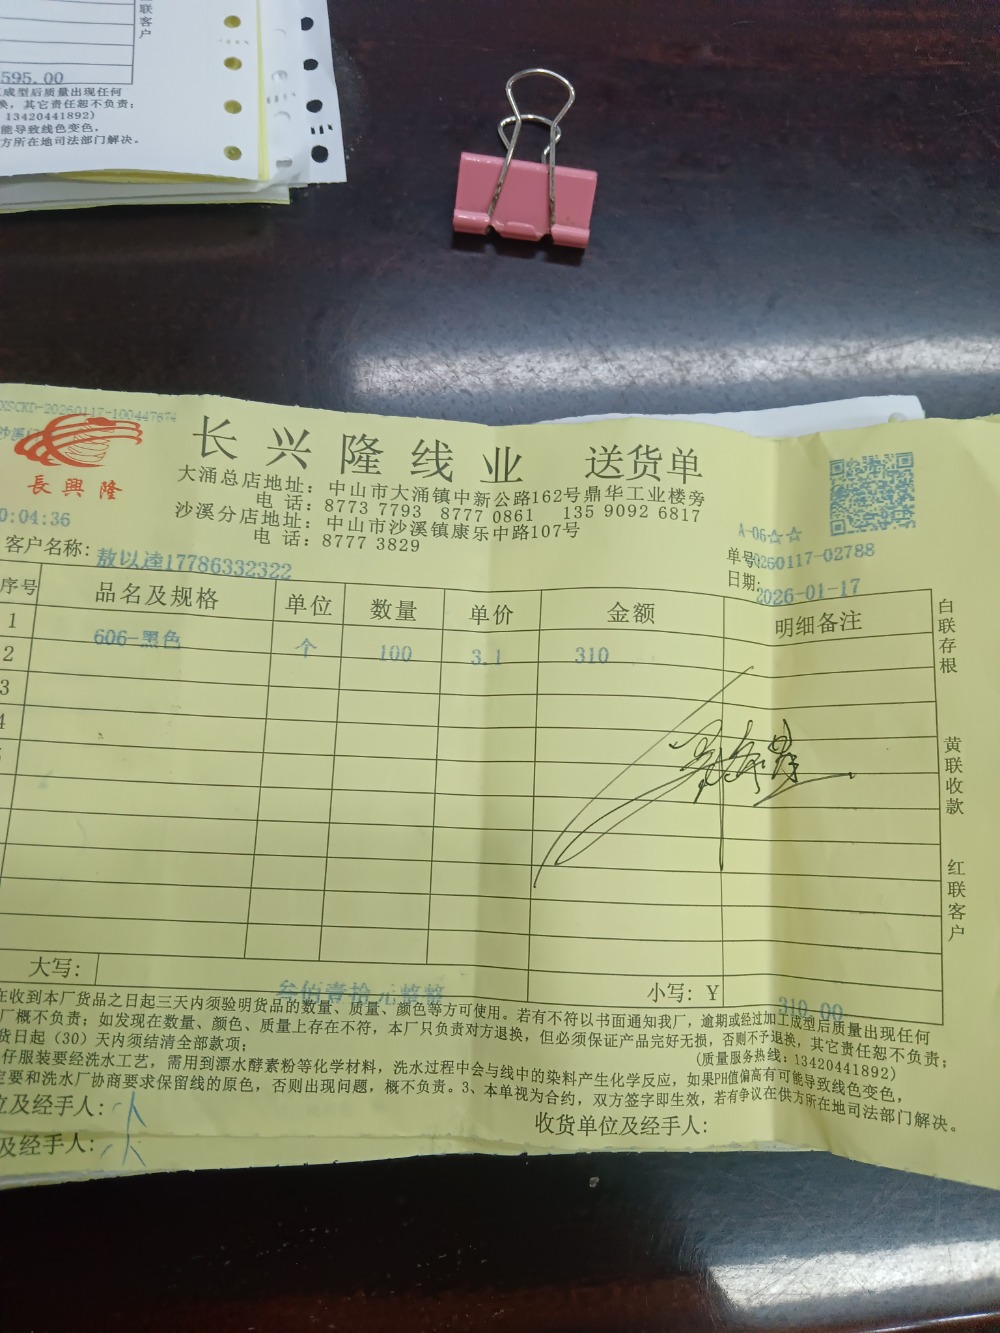 联客户
595.00
成型后质量出现任何
换，其它责任恕不负责；
13420441892）
能导致线色变色，
方所在地司法部门解决。
XSCKD-20260117-100447674
沙溪
長興隆
0:04:36
长兴隆线业 送货单
大涌总店地址：中山市大涌镇中新公路162号鼎华工业楼旁
电话：8773 7793 8777 0861 135 9092 6817
沙溪分店地址：中山市沙溪镇康乐中路107号
电话：8777 3829
A-06☆☆
单号:20260117-02788
日期:2026-01-17
客户名称：敖以逵17786332322
序号 品名及规格 单位 数量 单价 金额 明细备注
1 606-黑色 个 100 3.1 310
2
3
4
白联存根
黄联收款
红联客户
大写：叁佰壹拾元整整 小写：Y 310.00
在收到本厂货品之日起三天内须验明货品的数量、质量、颜色等方可使用。若有不符以书面通知我厂，逾期或经过加工成型后质量出现任何
厂概不负责；如发现在数量、颜色、质量上存在不符，本厂只负责对方退换，但必须保证产品完好无损，否则不予退换，其它责任恕不负责；
货日起（30）天内须结清全部款项； （质量服务热线：13420441892）
仔服装要经洗水工艺，需用到漂水酵素粉等化学材料，洗水过程中会与线中的染料产生化学反应，如果PH值偏高有可能导致线色变色，
定要和洗水厂协商要求保留线的原色，否则出现问题，概不负责。3、本单视为合约，双方签字即生效，若有争议在供方所在地司法部门解决。
位及经手人：
收货单位及经手人：
及经手人：